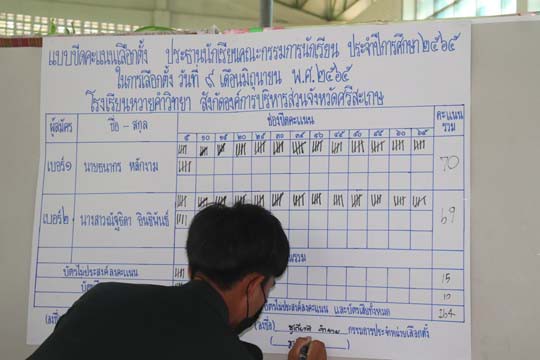 แบบขีดคะแนนเลือกตั้ง ประธานนักเรียนคณะกรรมการนักเรียน ประจำปีการศึกษา ๒๕๖๕
ในการเลือกตั้ง วันที่ ๙ เดือนมิถุนายน พ.ศ. ๒๕๖๕
โรงเรียนหวายคำวิทยา สังกัดองค์การบริหารส่วนจังหวัดศรีสะเกษ
ผู้สมัคร ชื่อ - สกุล ช่องขีดคะแนน คะแนนรวม
๕ ๑๐ ๑๕ ๒๐ ๒๕ ๓๐ ๓๕ ๔๐ ๔๕ ๕๐ ๕๕ ๖๐ ๖๕
เบอร์๑ นายธนากร หลักงาม 70
เบอร์๒ นางสาวณัฐธิดา อินธิพันธ์ 69
รวม
บัตรไม่ประสงค์ลงคะแนน 15
10
ไม่ประสงค์ลงคะแนน และบัตรเสียทั้งหมด 164
(ลงชื่อ) กรรมการประจำหน่วยเลือกตั้ง